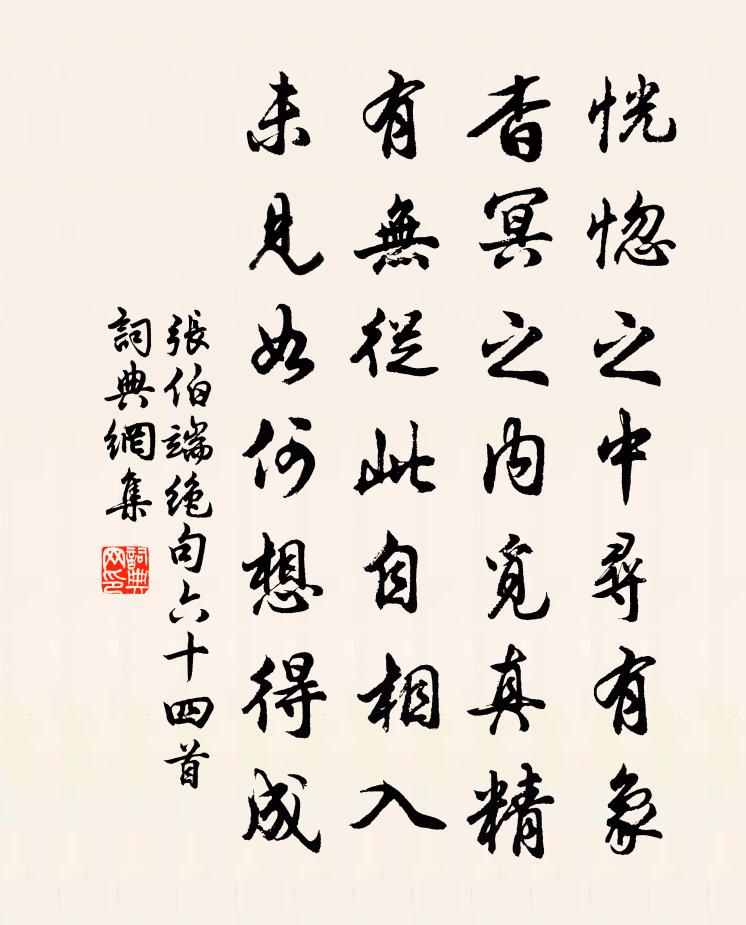 恍惚之中尋有象
杳冥之内覓真精
有無從此自相入
未見如何想得成
張伯端絶句六十四首
詞典網集
詞典网印